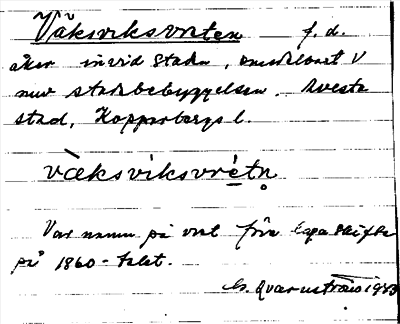 Väksviksvreten f. d.
åker invid staden, omedelbart V
nuv stadsbebyggelsen. Avesta
stad, Kopparbergs l.
væksviksvrétn̥
Var namn på vret före laga skifte
på 1860-talet.
G. Qvarnström 1943